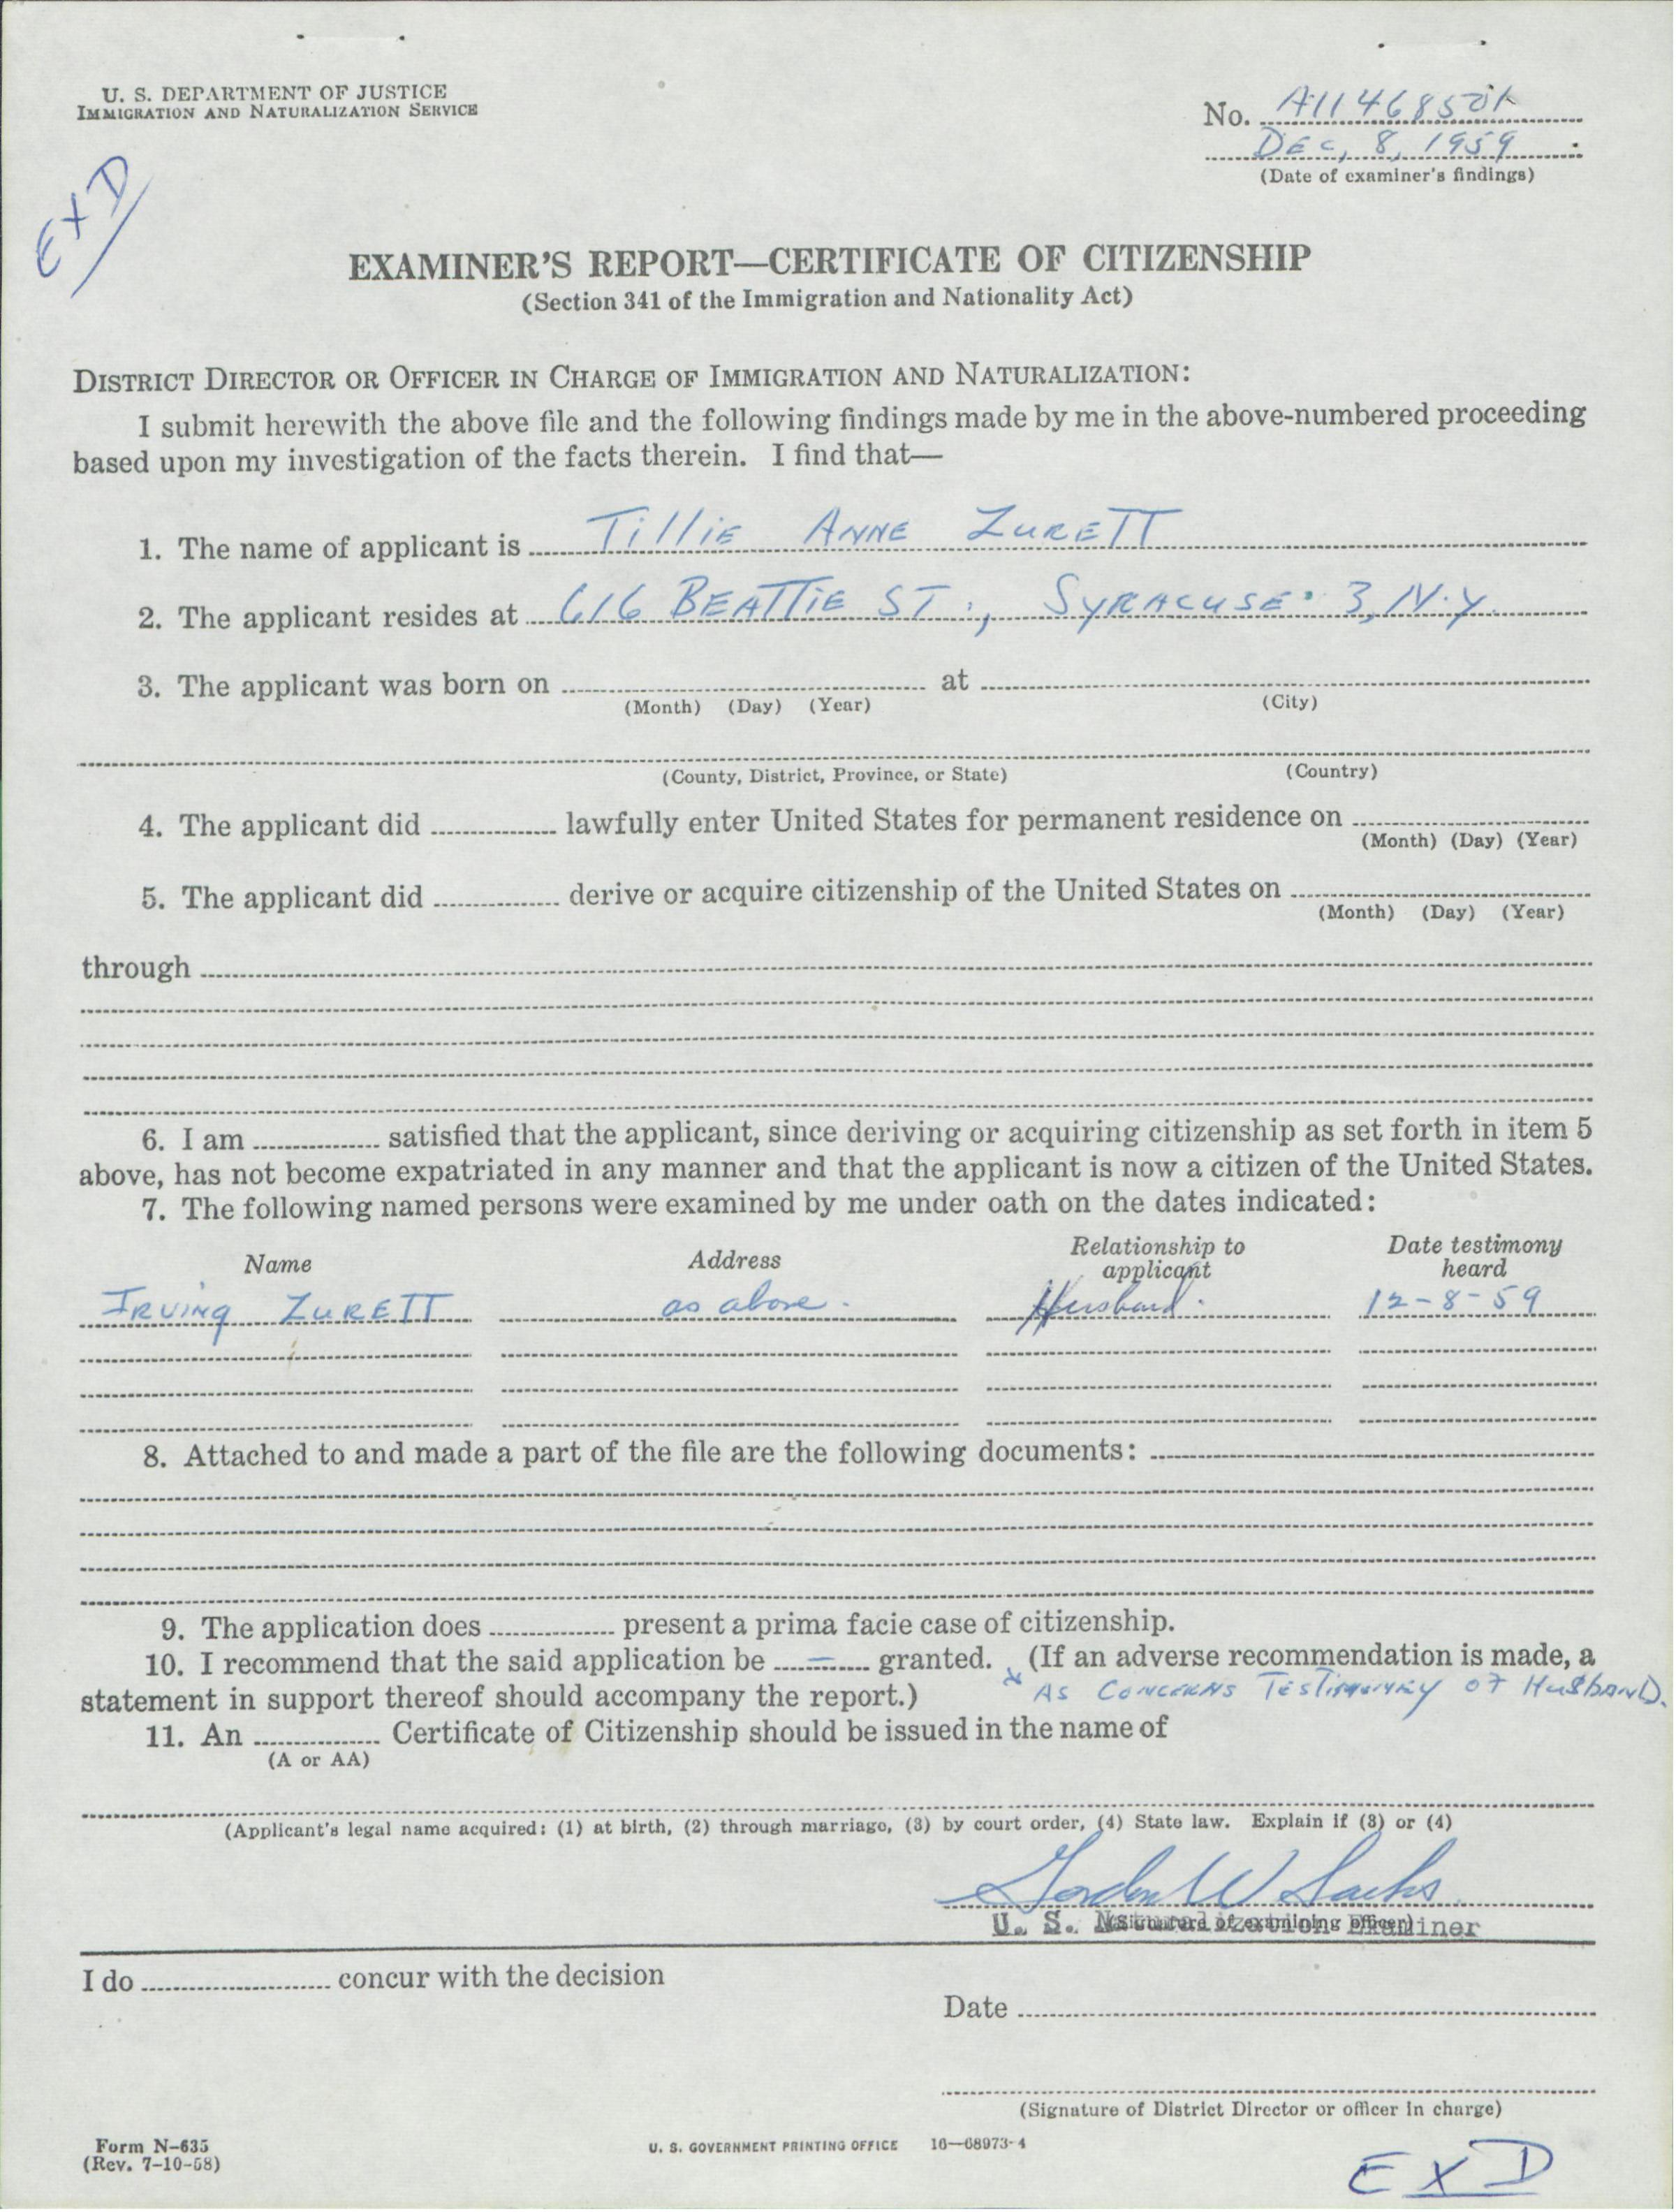 U. S. DEPARTMENT OF JUSTICE
IMMIGRATION AND NATURALIZATION SERVICE
No. A11468501
DEC, 8, 1959
(Date of examiner's findings)
EXD
EXAMINER'S REPORT—CERTIFICATE OF CITIZENSHIP
(Section 341 of the Immigration and Nationality Act)
DISTRICT DIRECTOR OR OFFICER IN CHARGE OF IMMIGRATION AND NATURALIZATION:
I submit herewith the above file and the following findings made by me in the above-numbered proceeding
based upon my investigation of the facts therein. I find that—
1. The name of applicant is Tillie ANNE ZURETT
2. The applicant resides at 616 BEATTIE ST., SYRACUSE 3, N.Y.
3. The applicant was born on at
(Month) (Day) (Year) (City)
(County, District, Province, or State) (Country)
4. The applicant did lawfully enter United States for permanent residence on
(Month) (Day) (Year)
5. The applicant did derive or acquire citizenship of the United States on
(Month) (Day) (Year)
through
6. I am satisfied that the applicant, since deriving or acquiring citizenship as set forth in item 5
above, has not become expatriated in any manner and that the applicant is now a citizen of the United States.
7. The following named persons were examined by me under oath on the dates indicated:
Name Address Relationship to applicant Date testimony heard
IRVING ZURETT as above. Husband. 12-8-59
8. Attached to and made a part of the file are the following documents:
9. The application does present a prima facie case of citizenship.
10. I recommend that the said application be — granted. x (If an adverse recommendation is made, a
statement in support thereof should accompany the report.) x AS CONCERNS TESTIMONY OF HUSBAND.
11. An Certificate of Citizenship should be issued in the name of
(A or AA)
(Applicant's legal name acquired: (1) at birth, (2) through marriage, (3) by court order, (4) State law. Explain if (3) or (4)
Gordon W Sachs
(Signature of examining officer)
U. S. Naturalization Examiner
I do concur with the decision
Date
(Signature of District Director or officer in charge)
Form N-635
(Rev. 7-10-58)
U. S. GOVERNMENT PRINTING OFFICE 16—68973-4
EXD